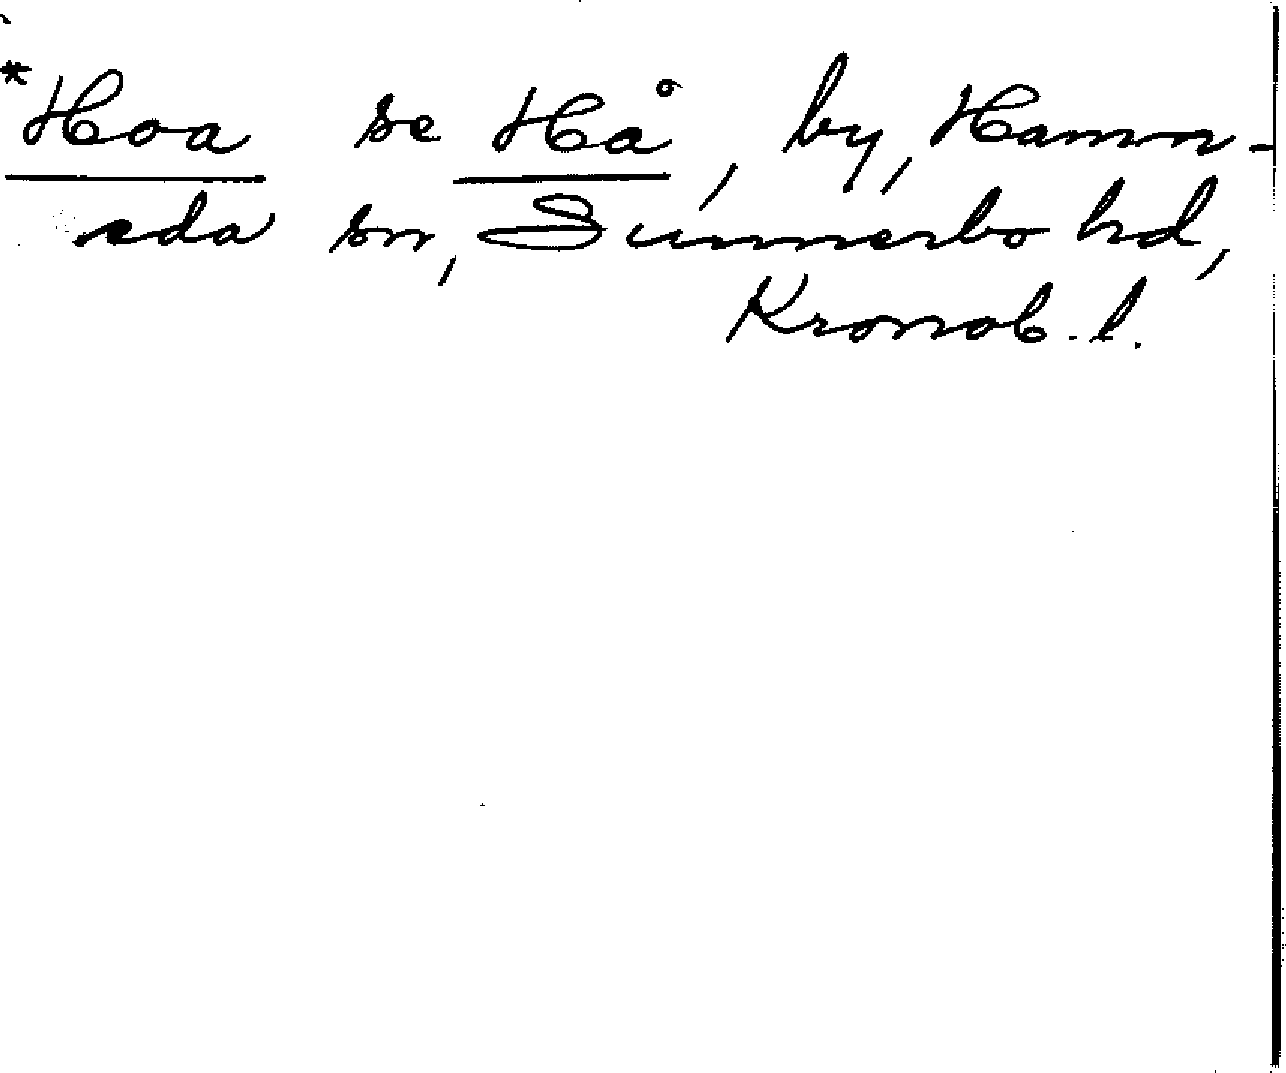 *Hoa se Hå, by, Hamn-
eda sn, Sunnerbo hd,
Kronob. l.